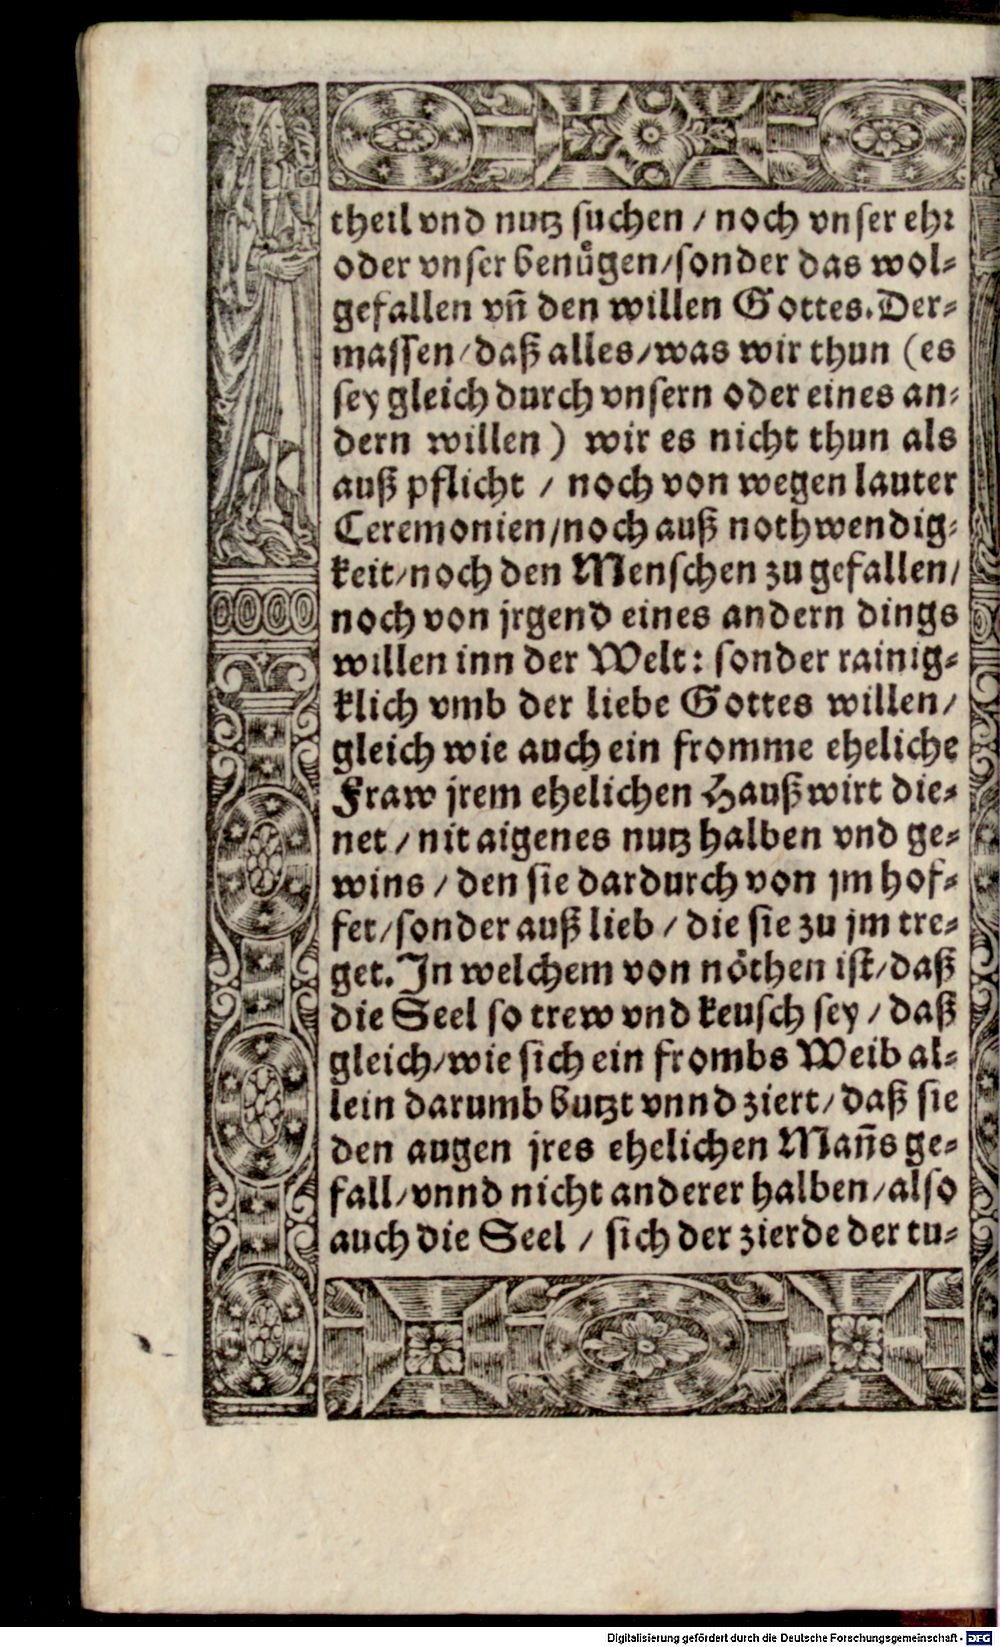 theil vnd nutz suchen / noch vnser ehr
oder vnser benůgen/sonder das wol-
gefallen vñ den willen Gottes. Der-
massen/daß alles/was wir thun (es
sey gleich durch vnsern oder eines an-
dern willen) wir es nicht thun als
auß pflicht / noch von wegen lauter
Ceremonien/noch auß nothwendig-
keit/noch den Menschen zu gefallen/
noch von jrgend eines andern dings
willen inn der Welt: sonder rainig-
klich vmb der liebe Gottes willen/
gleich wie auch ein fromme eheliche
Fraw jrem ehelichen Haußwirt die-
net / nit aigenes nutz halben vnd ge-
wins / den sie dardurch von jm hof-
fet/sonder auß lieb / die sie zu jm tre-
get. In welchem von nöthen ist/daß
die Seel so trew vnd keusch sey / daß
gleich/wie sich ein frombs Weib al-
lein darumb butzt vnnd ziert/daß sie
den augen jres ehelichen Mañs ge-
fall/vnnd nicht anderer halben/also
auch die Seel / sich der zierde der tu-
Digitalisierung gefördert durch die Deutsche Forschungsgemeinschaft - DFG